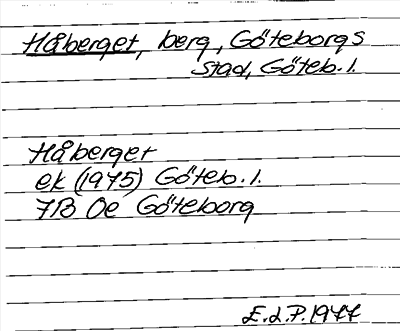 Håberget, berg, Göteborgs
stad, Göteb. l.
Håberget
ek (1975) Göteb. l.
7B Oe Göteborg
E.d.P. 1977